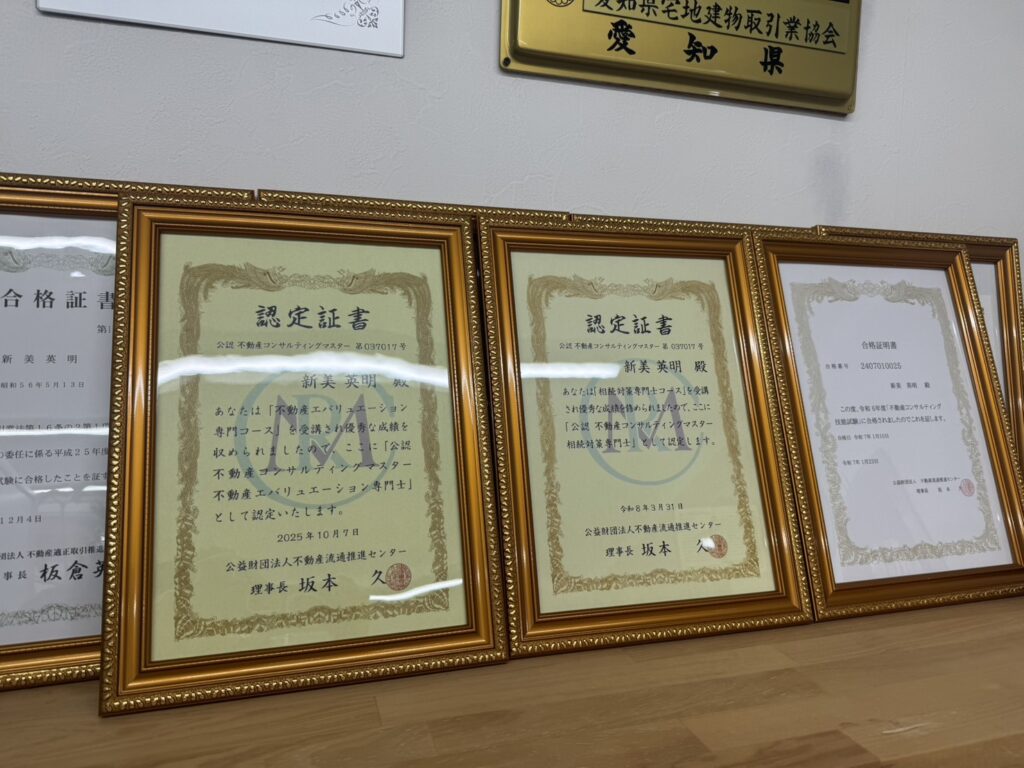 愛知県宅地建物取引業協会
愛知県
合格証書
新美英明
昭和56年5月13日
の委任に係る平成25年度
試験に合格したことを証す
12月4日
団法人 不動産適正取引推進
事長 板倉英
認定証書
公認 不動産コンサルティングマスター 第037017号
新美 英明 殿
あなたは「不動産エバリュエーション
専門コース」を受講され優秀な成績を
収められましたので、ここに「公認
不動産コンサルティングマスター
不動産エバリュエーション専門士」
として認定いたします。
2025年10月7日
公益財団法人不動産流通推進センター
理事長 坂本 久
認定証書
公認 不動産コンサルティングマスター 第037017号
新美 英明 殿
あなたは「相続対策専門士コース」を受講
され優秀な成績を修められましたので、ここに
「公認 不動産コンサルティングマスター
相続対策専門士」として認定します。
令和8年3月31日
公益財団法人不動産流通推進センター
理事長 坂本 久
合格証明書
合格番号 2407010025
新美 英明 殿
この度、令和6年度「不動産コンサルティング
技能試験」に合格されましたのでこれを証します。
合格日 令和7年1月10日
公益財団法人 不動産流通推進センター
理事長 坂本 久